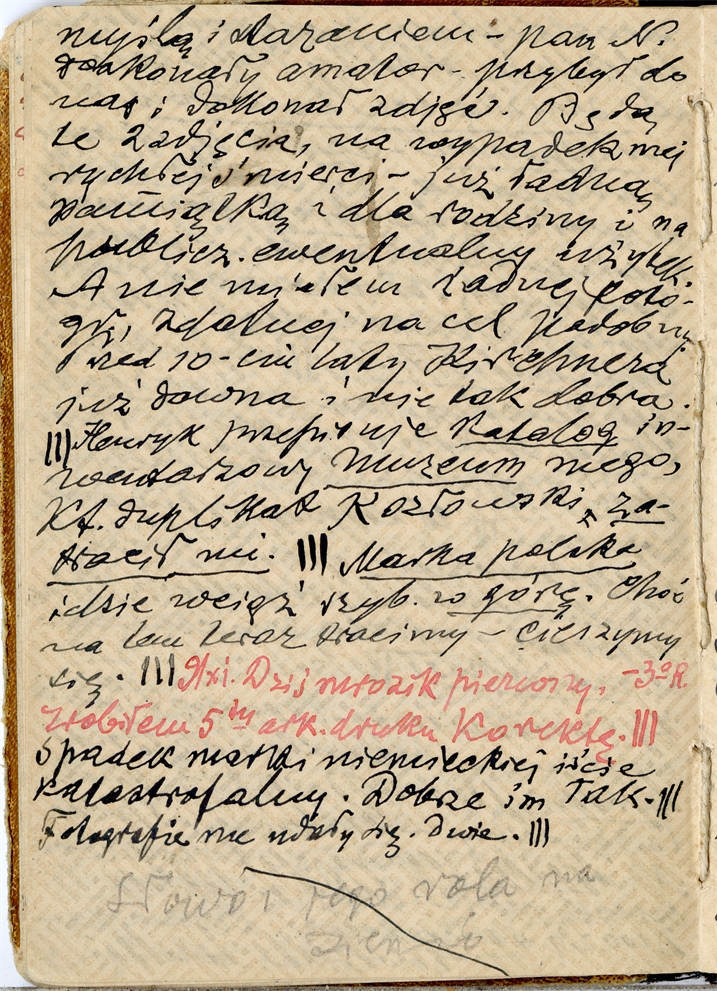 myślą i staraniem - pan N.
doskonały amator - przybył do
nas i dokonał zdjęć. Będą
te zdjęcia, na wypadek mej
rychłej śmierci - już ładną
pamiątką i dla rodziny i na
publicz. ewentualny użytek.
A nie miałem żadnej foto-
gr., zdatnej na cel podobny
Przed 10-ciu laty Kirchnera
już dawna i nie tak dobra.
||| Henryk przepisuje Katalog in-
wentarzowy Muzeum mego,
Kt. duplikat Kozłowski, za-
tracił mi. ||| Marka polska
idzie wciąż szyb. w górę. Choć
na tem teraz tracimy - cieszymy
się. ||| 9/xi. Dziś mrozik pierwszy. -3°R.
Zrobiłem 5ty ark. druku Korektę. |||
Spadek marki niemieckiej iście
katastrofalny. Dobrze im tak. |||
Fotografie me udały się. Dwie. |||
Słowo i jego rola na